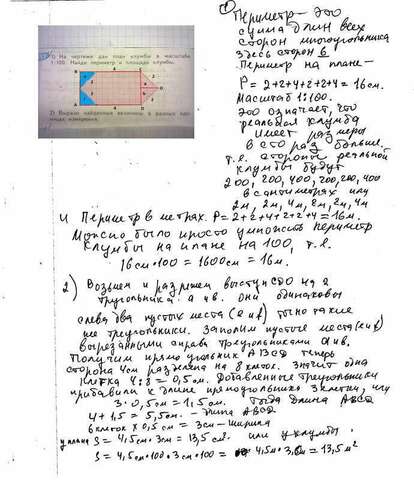 1) На чертеже дан план клумбы в масштабе
1:100. Найди периметр и площадь клумбы.
2) Вырази найденные величины в разных еди-
ницах измерения.
Периметр – это
сумма длин всех
сторон многоугольника
здесь сторон 6
Периметр на плане –
P = 2+2+4+2+2+4 = 16см.
Масштаб 1:100.
Это означает, что
реальная клумба
имеет размеры
в сто раз больше,
т.е. стороны реальной
клумбы будут
200, 200, 400, 200, 200, 400
в сантиметрах или
2м, 2м, 4м, 2м, 2м, 4м
и Периметр в метрах. P = 2+2+4+2+2+4 = 16м.
Можно было просто умножить периметр
клумбы на плане на 100, т.е.
16см·100 = 1600см = 16м.
2) Возьмем и разрежем выступ СОD на 2
треугольника а и в. Они одинаковы
слева два пустых места (с и d) точно такие
же треугольники. Заполним пустые места (с и d)
вырезанными справа треугольниками а и в.
Получим прямоугольник ABCD теперь
сторона 4см разделена на 8 клеток. Значит одна
клетка 4:8 = 0,5см. Добавленные треугольники
прибавили к длине прямоугольника 3 клетки, и
3·0,5см = 1,5см. Тогда длина ABCD
4+1,5 = 5,5см. – длина ABCD
6 клеток х 0,5см = 3см – ширина
у плана S = 4,5см·3см = 13,5см² или у клумбы.
S = 4,5см·100·3см·100 = 4,5м·3,0м = 13,5м²